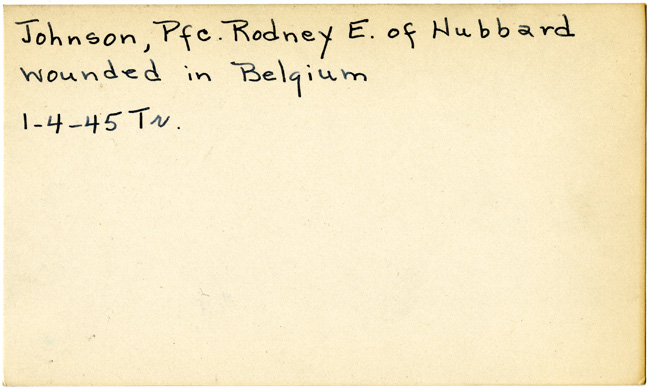 Johnson, Pfc. Rodney E. of Hubbard
wounded in Belgium
1-4-45 Tr.